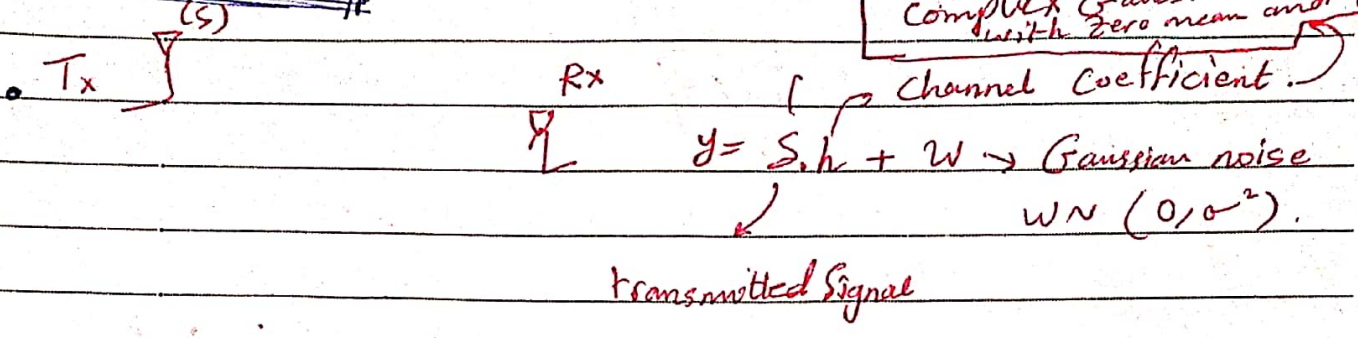 (S)
Complex
with zero mean and
Tx
Rx
Channel Coefficient.
y = S.h + W → Gaussian noise
W ~ (0, σ²).
transmitted Signal